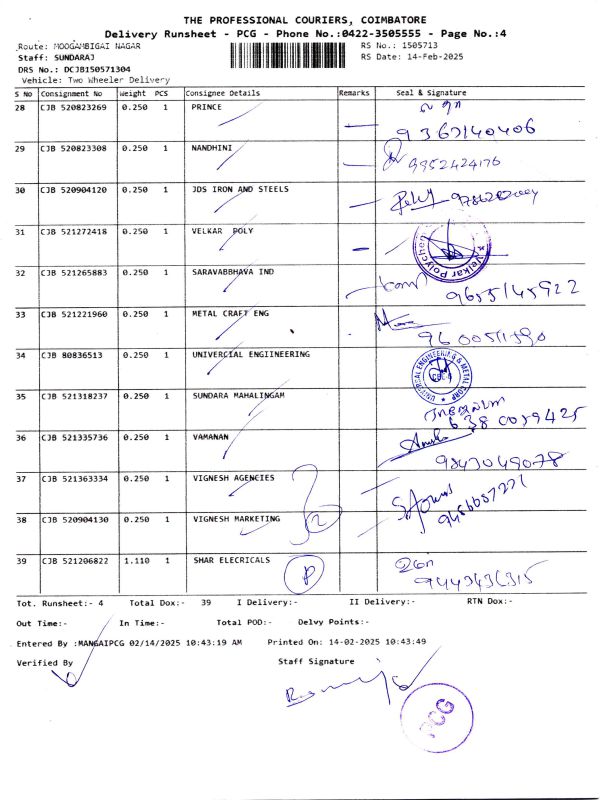 THE PROFESSIONAL COURIERS, COIMBATORE
Delivery Runsheet - PCG - Phone No.:0422-3505555 - Page No.:4
Route: MOOGAMBIGAI NAGAR RS No.: 1505713
Staff: SUNDARAJ RS Date: 14-Feb-2025
DRS No.: DCJB150571304
Vehicle: Two Wheeler Delivery
S No Consignment No Weight PCS Consignee Details Remarks Seal & Signature
28 CJB 520823269 0.250 1 PRINCE
9367140406
29 CJB 520823308 0.250 1 NANDHINI
9952424176
30 CJB 520904120 0.250 1 JDS IRON AND STEELS
31 CJB 521272418 0.250 1 VELKAR POLY
Velkar Polychem
32 CJB 521265883 0.250 1 SARAVABBHAVA IND
9655145922
33 CJB 521221960 0.250 1 METAL CRAFT ENG
34 CJB 80836513 0.250 1 UNIVERCIAL ENGIINEERING
UNIVERSAL ENGINEERING & METAL CORP
35 CJB 521318237 0.250 1 SUNDARA MAHALINGAM
638 0059425
36 CJB 521335736 0.250 1 VAMANAN
9843049078
37 CJB 521363334 0.250 1 VIGNESH AGENCIES
38 CJB 520904130 0.250 1 VIGNESH MARKETING 2
39 CJB 521206822 1.110 1 SHAR ELECRICALS P
Tot. Runsheet:- 4 Total Dox:- 39 I Delivery:- II Delivery:- RTN Dox:-
Out Time:- In Time:- Total POD:- Delvy Points:-
Entered By :MANGAIPCG 02/14/2025 10:43:19 AM Printed On: 14-02-2025 10:43:49
Verified By Staff Signature
PCG